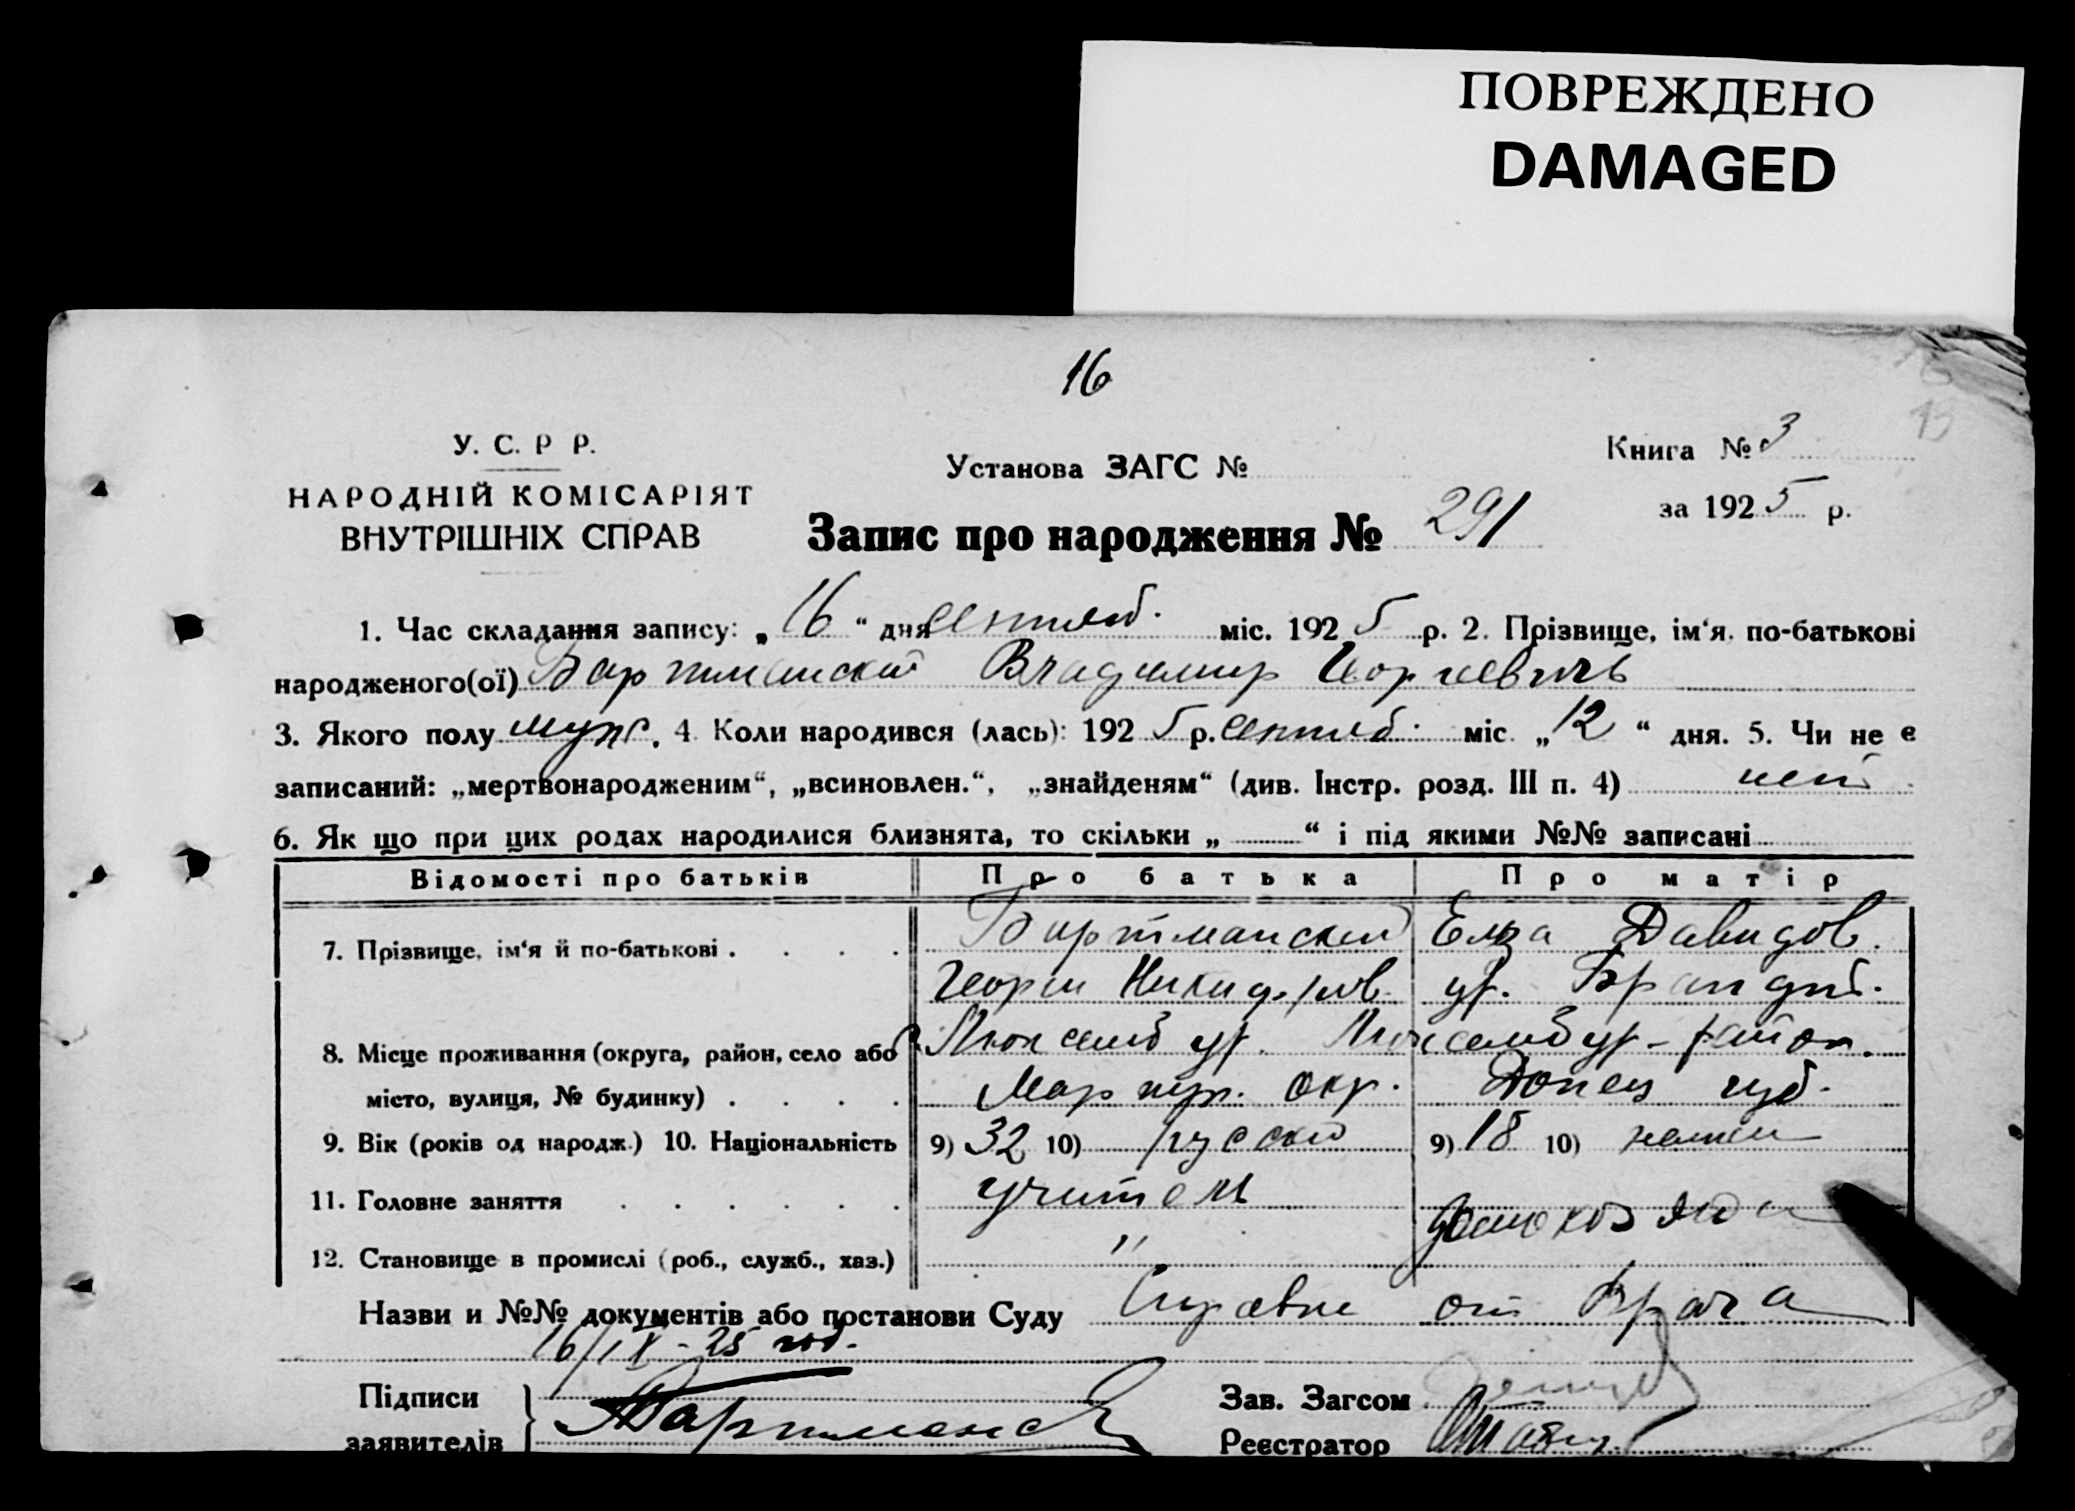 ПОВРЕЖДЕНО
DAMAGED
16
У. С. Р Р.
НАРОДНІЙ КОМІСАРІЯТ
ВНУТРІШНІХ СПРАВ
Установа ЗАГС №
Книга № 3
за 1925 р.
Запис про народження № 291
1. Час складання запису: „16“ дня сентяб. міс. 1925 р. 2. Прізвище, ім‘я, по-батькові
народженого(ої) Бартманский Владимир Георгиевичь
3. Якого полу муж. 4. Коли народився (лась): 1925 р. сентяб. міс. „12“ дня. 5. Чи не є
записаний: „мертвонародженим“, „всиновлен.“, „знайденям“ (див. Інстр. розд. III п. 4) нет
6. Як що при цих родах народилися близнята, то скільки „ “ і під якими №№ записані
Відомості про батьків Про батька Про матір
7. Прізвище, ім‘я й по-батькові . . . . Бартманский Елза Давидов.
Георги Никифоров. ур. Брандт.
8. Місце проживання (округа, район, село або Люксембург. Люксембург-район.
місто, вулиця, № будинку) . . . . Мариуп. окр. Донец губ.
9. Вік (років од народж.) 10. Національність 9) 32 10) русский 9) 18 10) немки
11. Головне заняття . . . . . . учитель домохозяйка
12. Становище в промислі (роб., служб., хаз.) "
Назви и №№ документів або постанови Суду Справка от Врача
16/IX-25 год.
Підписи
заявителів Бартманс
Зав. Загсом
Реєстратор